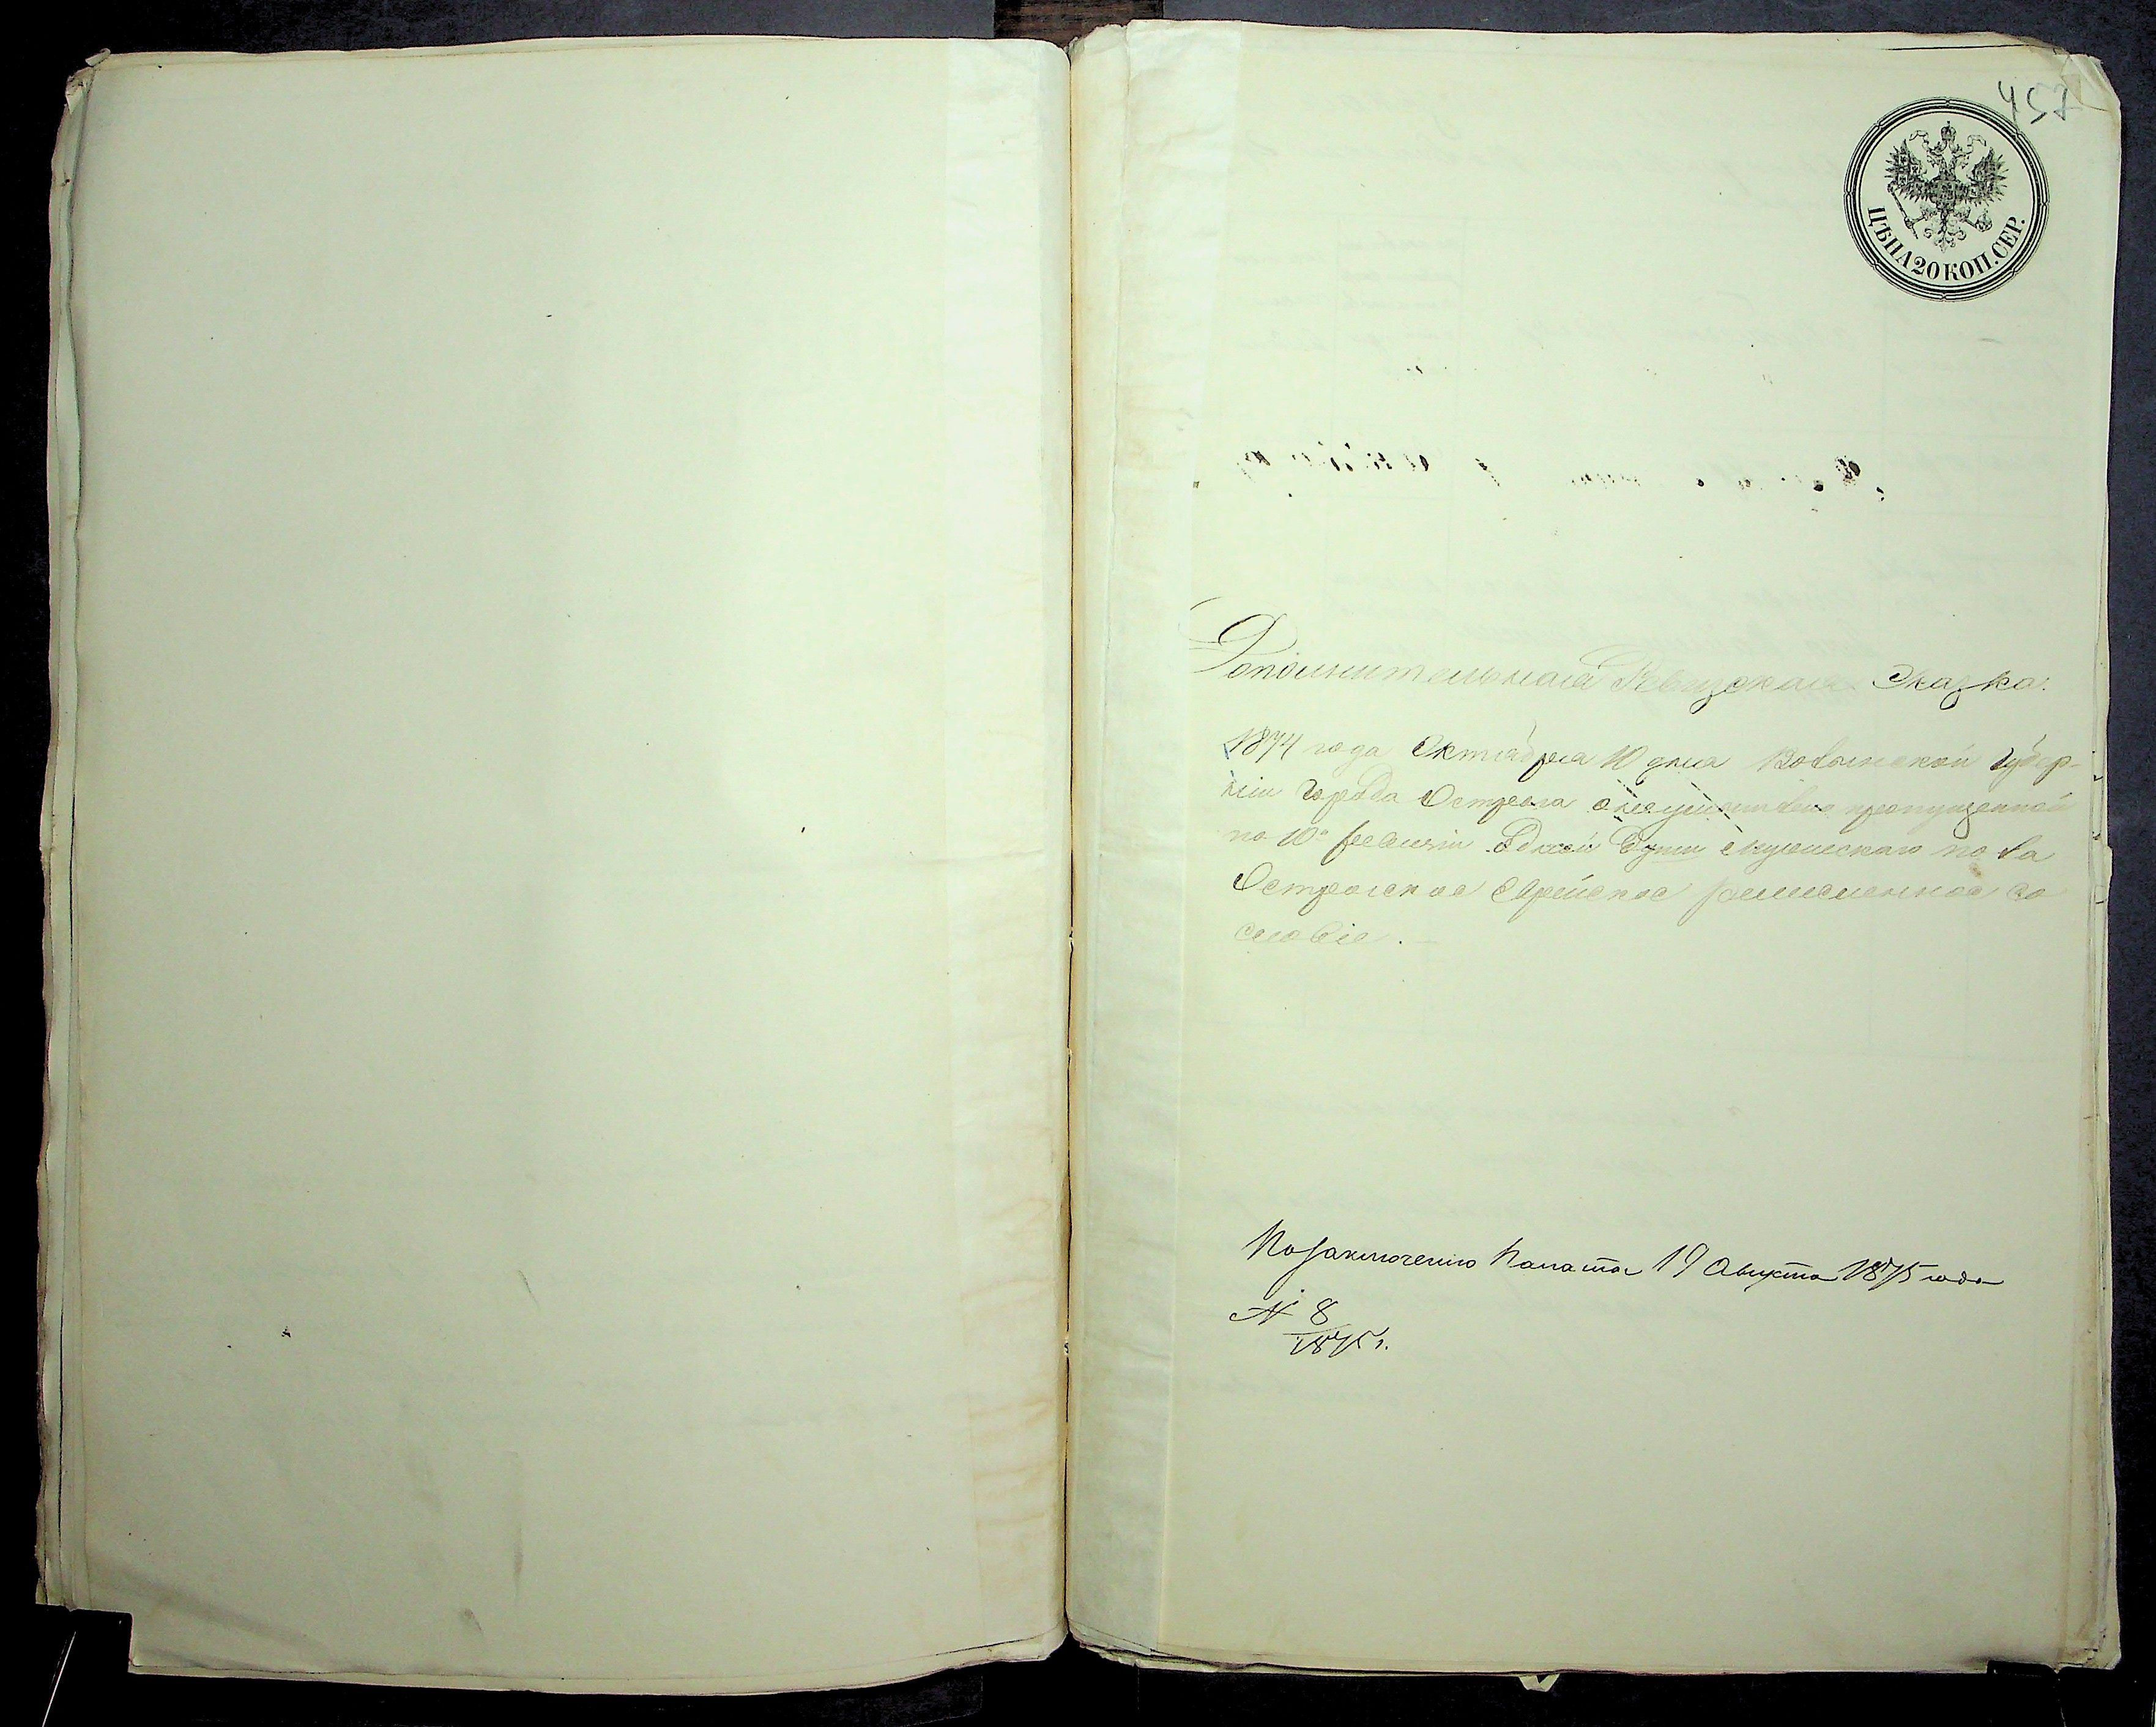 457
ЦѢНА 20 КОП. СЕР.
Дополнительная Ревизская Сказка.
1874 года Октября 10 дня Волынской Губер-
ніи Города Острога о пропущенной
по 10й ревизіи Одной Души мужескаго пола
Острогское Еврейское ремесленное со
словіе.
По заключенію Палаты 19 Августа 1875 года
№ 8
1875 г.